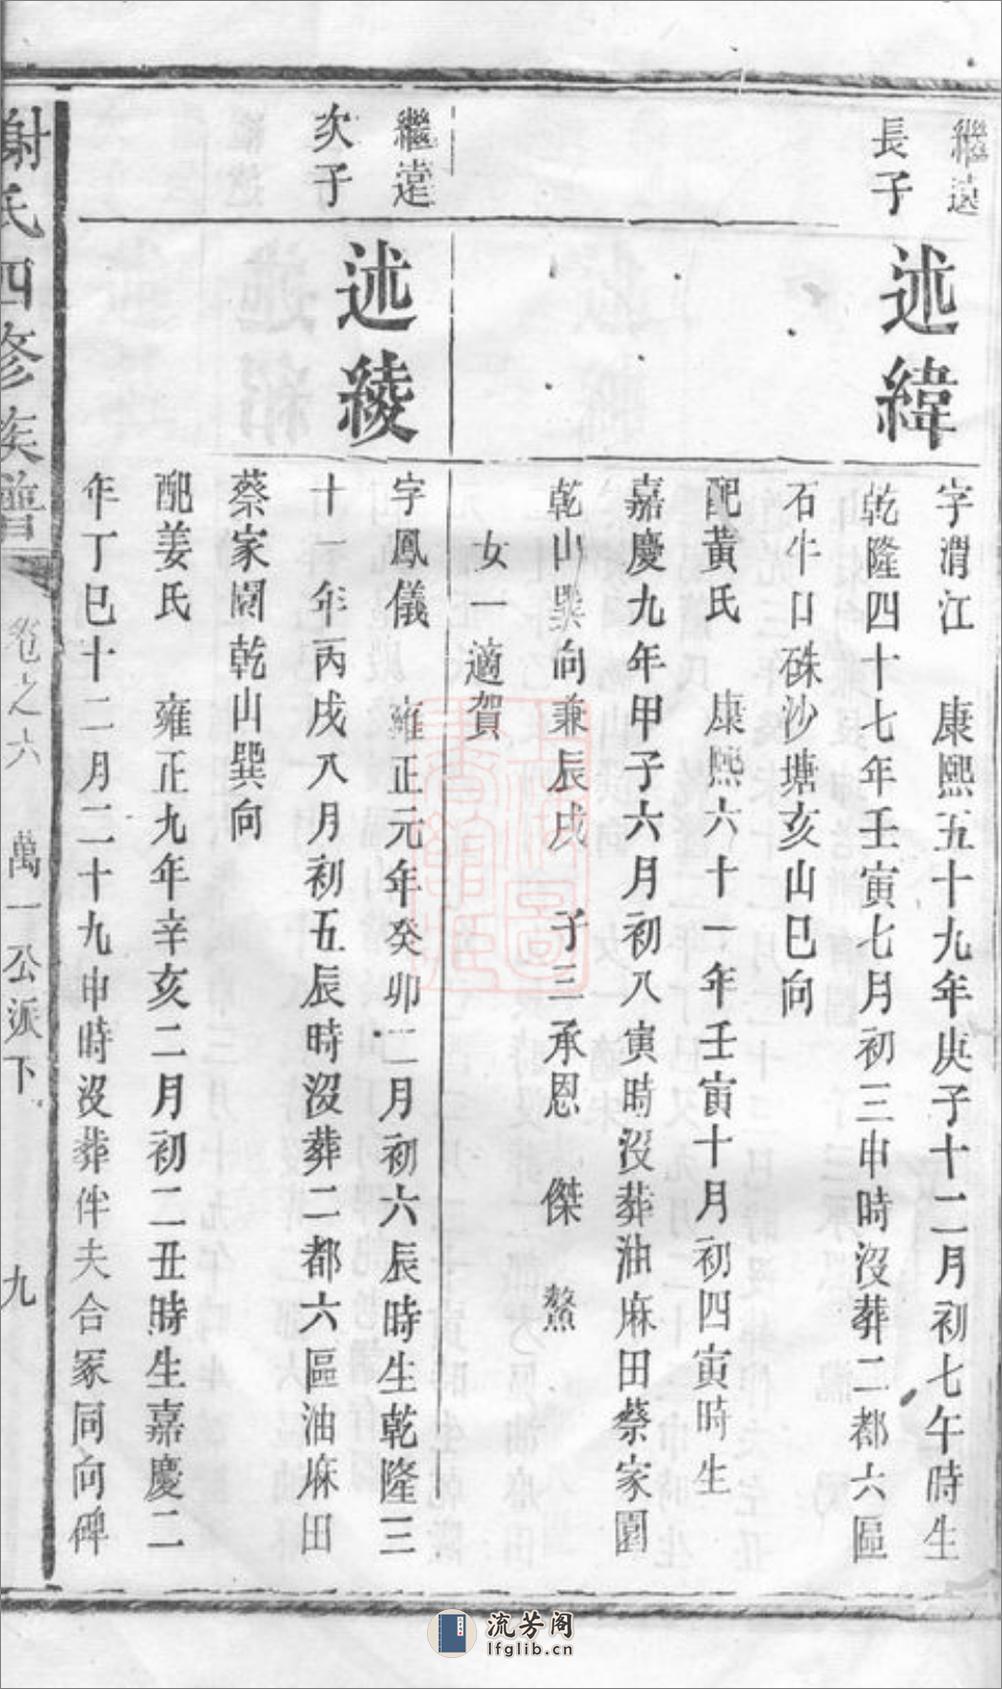 繼遠
長子
述緯
字渭江　康熙五十九年庚子十二月初七午時生
乾隆四十七年壬寅七月初三申時沒葬二都六區
石牛口硃沙塘亥山巳向
配黃氏　康熙六十一年壬寅十月初四寅時生
嘉慶九年甲子六月初八寅時沒葬油麻田蔡家園
乾山巽向兼辰戌　子三承恩　傑　鰲
女一適賀
繼遠
次子
述綾
字鳳儀　雍正元年癸卯二月初六辰時生乾隆三
十一年丙戌八月初五辰時沒葬二都六區油麻田
蔡家園乾山巽向
配姜氏　雍正九年辛亥二月初二丑時生嘉慶二
年丁巳十二月二十九申時沒葬伴夫合冢同向碑
謝氏四修族譜
卷之六　萬一公派下　九
流芳阁
lfglib.cn